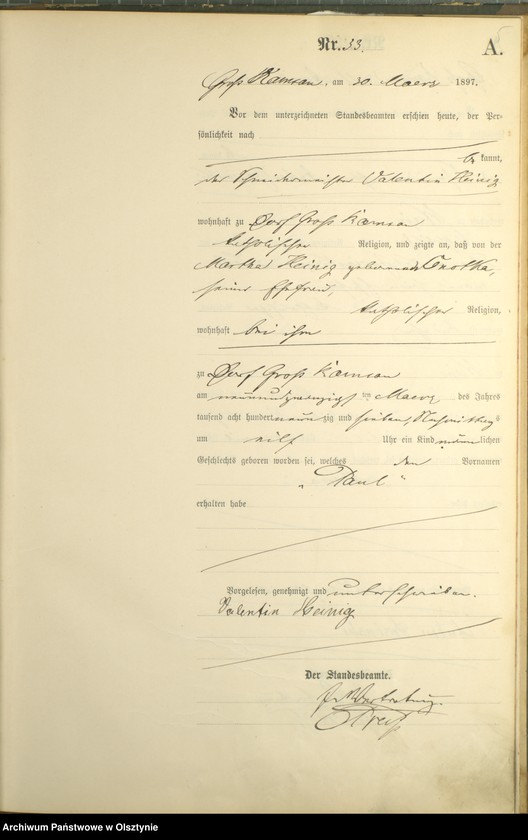 Nr. 33. A.
Groß Ramsau, am 30. Maerz 1897.
Vor dem unterzeichneten Standesbeamten erschien heute, der Per-
sönlichkeit nach
bekannt,
der Valentin Heinig
wohnhaft zu Dorf Groß Ramsau
katholischer Religion, und zeigte an, daß von der
Martha Heinig geborenen
seiner Ehefrau,
katholischer Religion,
wohnhaft bei ihm
zu Dorf Groß Ramsau
am neunundzwanzigsten Maerz des Jahres
tausend acht hundert neunzig und sieben, Nachmittags
um eilf Uhr ein Kind männlichen
Geschlechts geboren worden sei, welches den Vornamen
„Paul“
erhalten habe
Vorgelesen, genehmigt und unterschrieben.
Valentin Heinig
Der Standesbeamte.
In Vertretung.
Archiwum Państwowe w Olsztynie